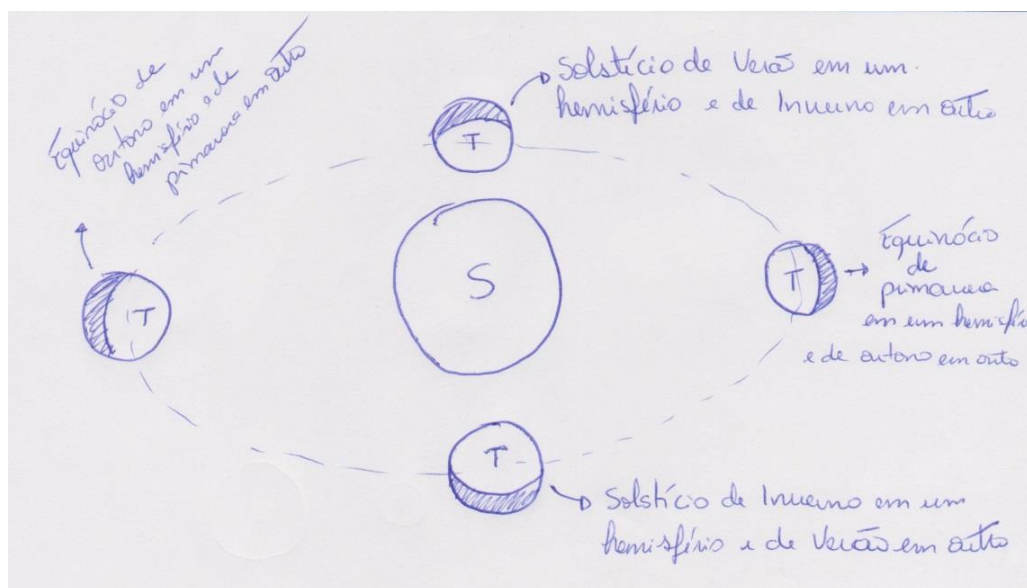 Equinócio de
outono em um
hemisfério e de
primavera em outro
Solstício de Verão em um
hemisfério e de Inverno em outro
T
S
T
T
Equinócio
de
primavera
em um hemisfério
e de outono em outro
T
Solstício de Inverno em um
hemisfério e de Verão em outro